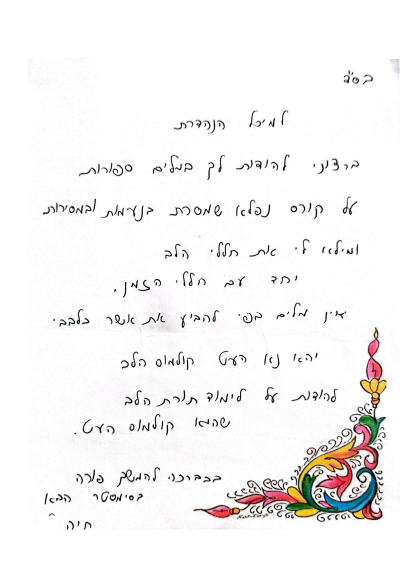 בס"ד
למיכל הנהדרת
ברצוני להודות לך במלים ספורות
על קורס נפלא שמסרת בנעימות ובמסירות
ומילא לי את חללי הלב
יחד עם חללי הזמן.
אין מלים בפי להביע את אשר בלבבי
יהא נא העט קולמוס הלב
להודות על לימוד תורת הלב
שהוא קולמוס העט.
בברכה להמשך פורה
בסימסטר הבא
חיה